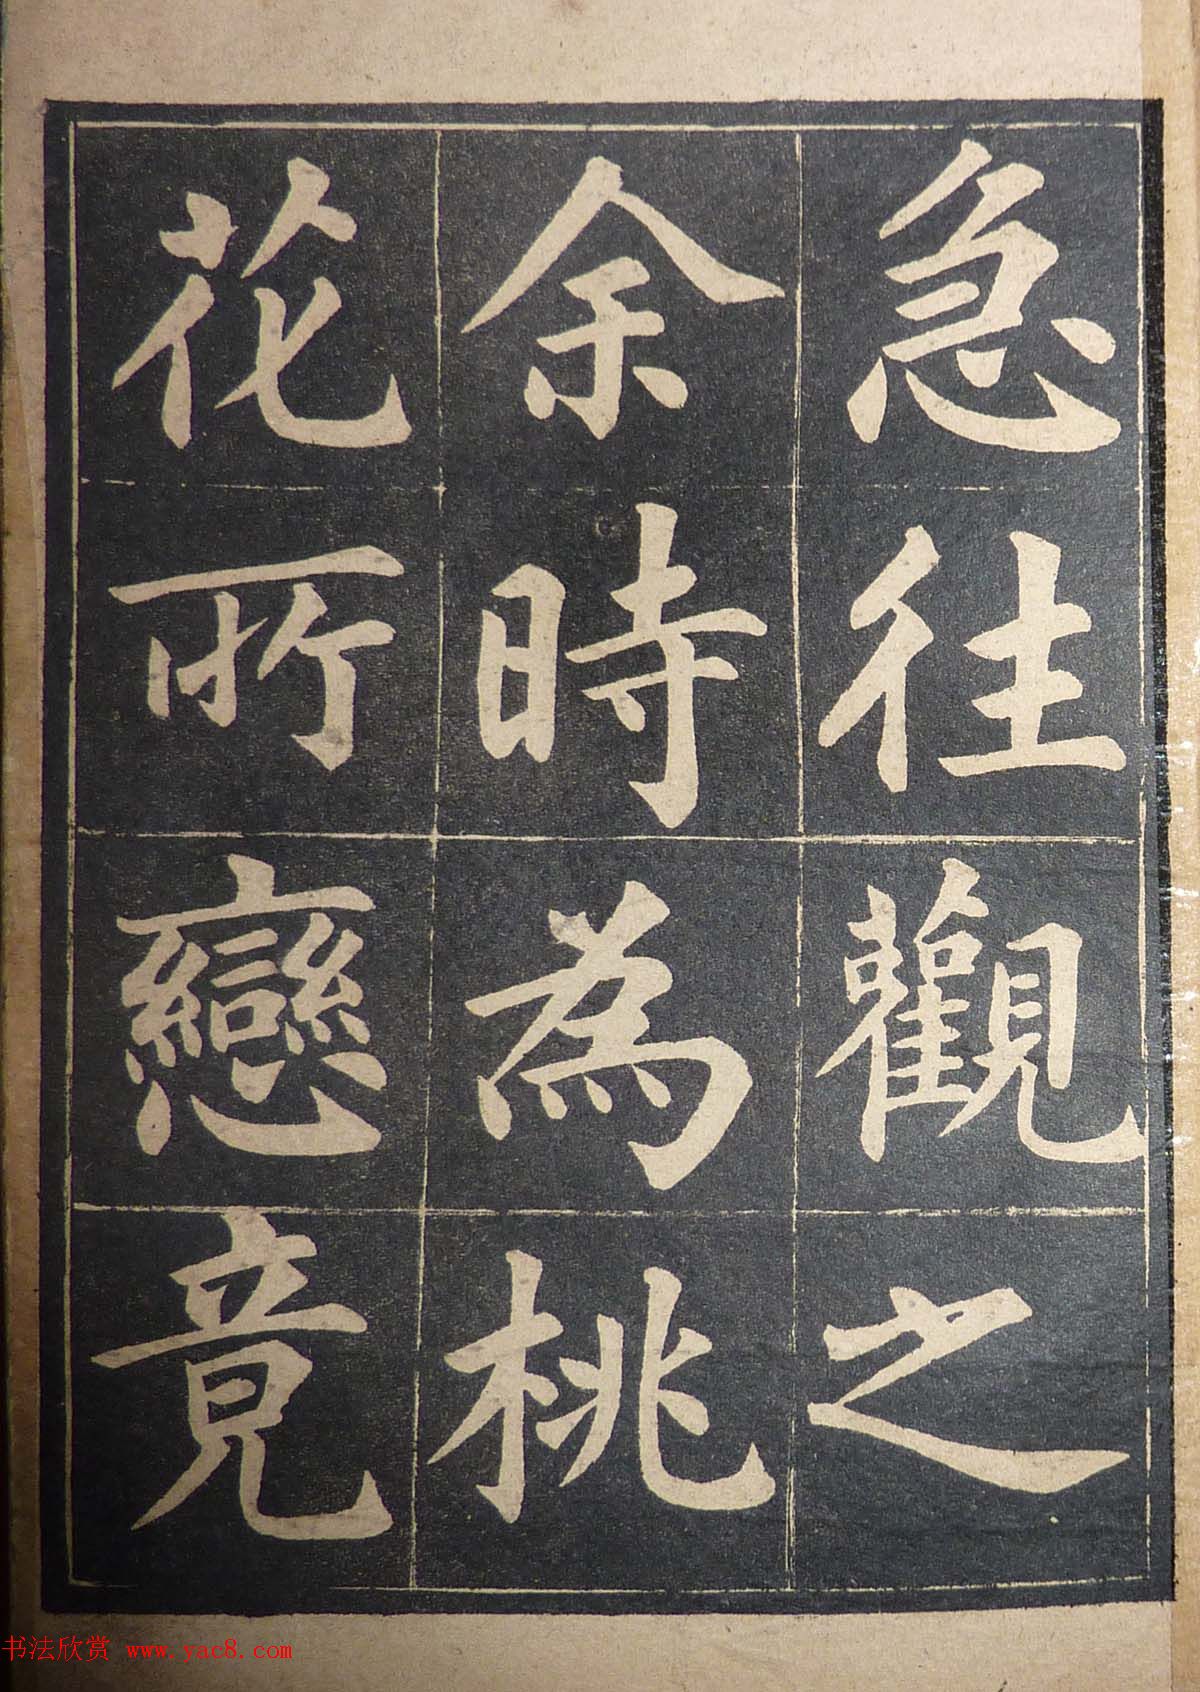 急往觀之
余時為桃
花所戀竟
书法欣赏 www.yac8.com